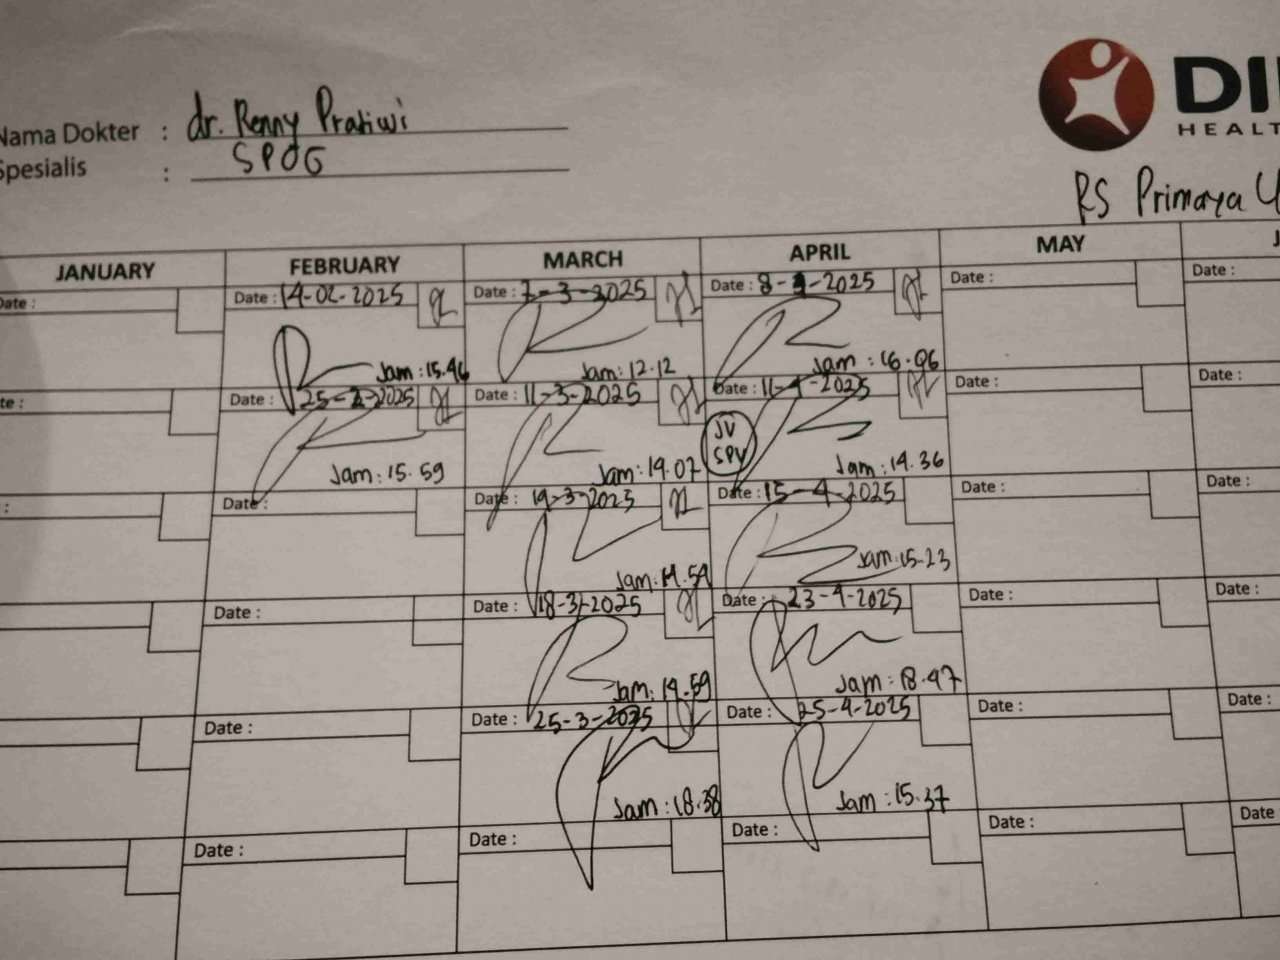 Nama Dokter : dr. Renny Pratiwi
Spesialis : SPOG
DI
HEALT
RS Primaya
JANUARY FEBRUARY MARCH APRIL MAY J
Date : Date : 14-02-2025 Date : 7-3-2025 Date : 8-4-2025 Date : Date :
Jam : 15.46 Jam : 12.12 Jam : 16.06
Date : 25-2-2025 Date : 11-3-2025 Date : 11-4-2025 Date : Date :
JV
SPV
Jam : 15.59 Jam : 14.07 Jam : 14.36
: Date : Date : 14-3-2025 Date : 15-4-2025 Date : Date :
Jam : 14.54 Jam : 15.23
Date : Date : 18-3-2025 Date : 23-4-2025 Date : Date :
Jam : 14.59 Jam : 18.47
Date : Date : 25-3-2025 Date : 25-4-2025 Date : Date :
Jam : 18.38 Jam : 15.37
Date : Date : Date : Date : Date